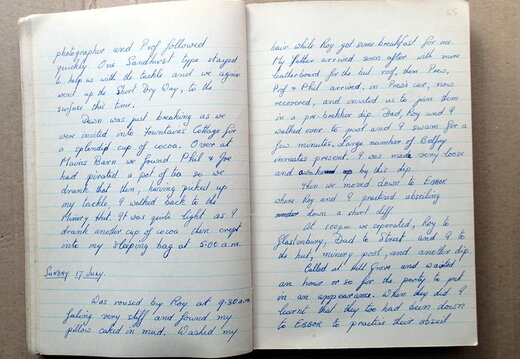 photographer and Prof followed
quickly. One Sandhurst type stayed
to help us with the tackle and we again
went up the Short Dry Way, to the
surface this time.
Dawn was just breaking as we
were invited into Fountains Cottage for
a splendid cup of cocoa. Over at
Mains Barn we found Phil & Joe
had pirated a pot of tea so we
drank that then, having picked up
my tackle, I walked back to the
Minery Hut. It was quite light as I
drank another cup of cocoa then crept
into my sleeping bag at 5:00 a.m.
Sunday 17 July.
Was roused by Roy at 9.30am
feeling very stiff and found my
pillow caked in mud. Washed my
65
hair while Roy got some breakfast for me.
My Father arrived soon after with more
leatherboard for the hut roof, then Prew,
Prof & Phil arrived, in Prew's car, now
recovered, and invited us to join them
in a pre-brekker dip. Dad, Roy and I
walked over to pool and I swam for a
few minutes. Large number of Belfry
inmates present. I was made very loose
and awakened up by this dip.
Then we moved down to Ebbor
where Roy and I practised abseiling
down a short cliff.
At 1.00pm we separated, Roy to
Glastonbury, Dad to Street and I to
the hut, minery pool, and another dip.
Called at Hill Grove and waited
an hour or so for the party to put
in an appearance. When they did I
learnt that they too had been down
to EBBOR to practise their abseil